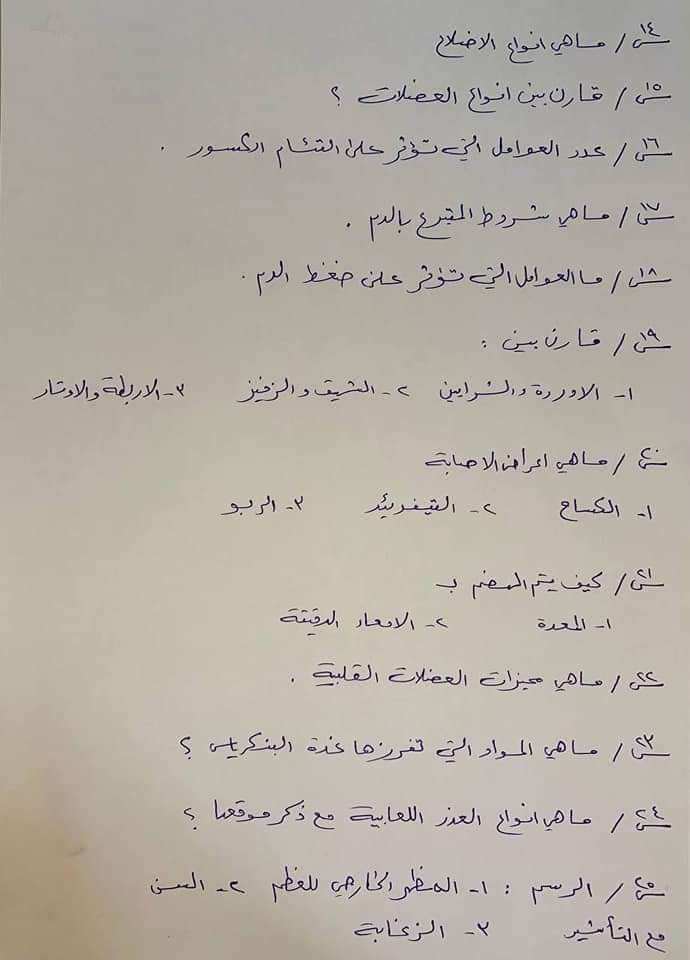 س١٤/ ماهي انواع الاضلاع
س١٥/ قارن بين انواع العضلات ؟
س١٦/ عدد العوامل التي تؤثر على التئام الكسور .
س١٧/ ماهي شروط المتبرع بالدم .
س١٨/ ما العوامل التي تؤثر على ضغط الدم .
س١٩/ قارن بين :
١- الاوردة والشرايين ٢- الشهيق والزفير ٣- الاربطة والاوتار
س٢٠/ ماهي اعراض الاصابة
١- الكساح ٢- التيفوئيد ٣- الربو
س٢١/ كيف يتم الهضم بـ
١- المعدة ٢- الامعاء الدقيقة
س٢٢/ ماهي مميزات العضلات القلبية .
س٢٣/ ماهي المواد التي تفرزها غدة البنكرياس ؟
س٢٤/ ماهي انواع الغدد اللعابية مع ذكر موقعها ؟
س٢٥/ الرسم : ١- المظهر الخارجي للعظم ٢- السن
مع التأشير ٣- الزغابة